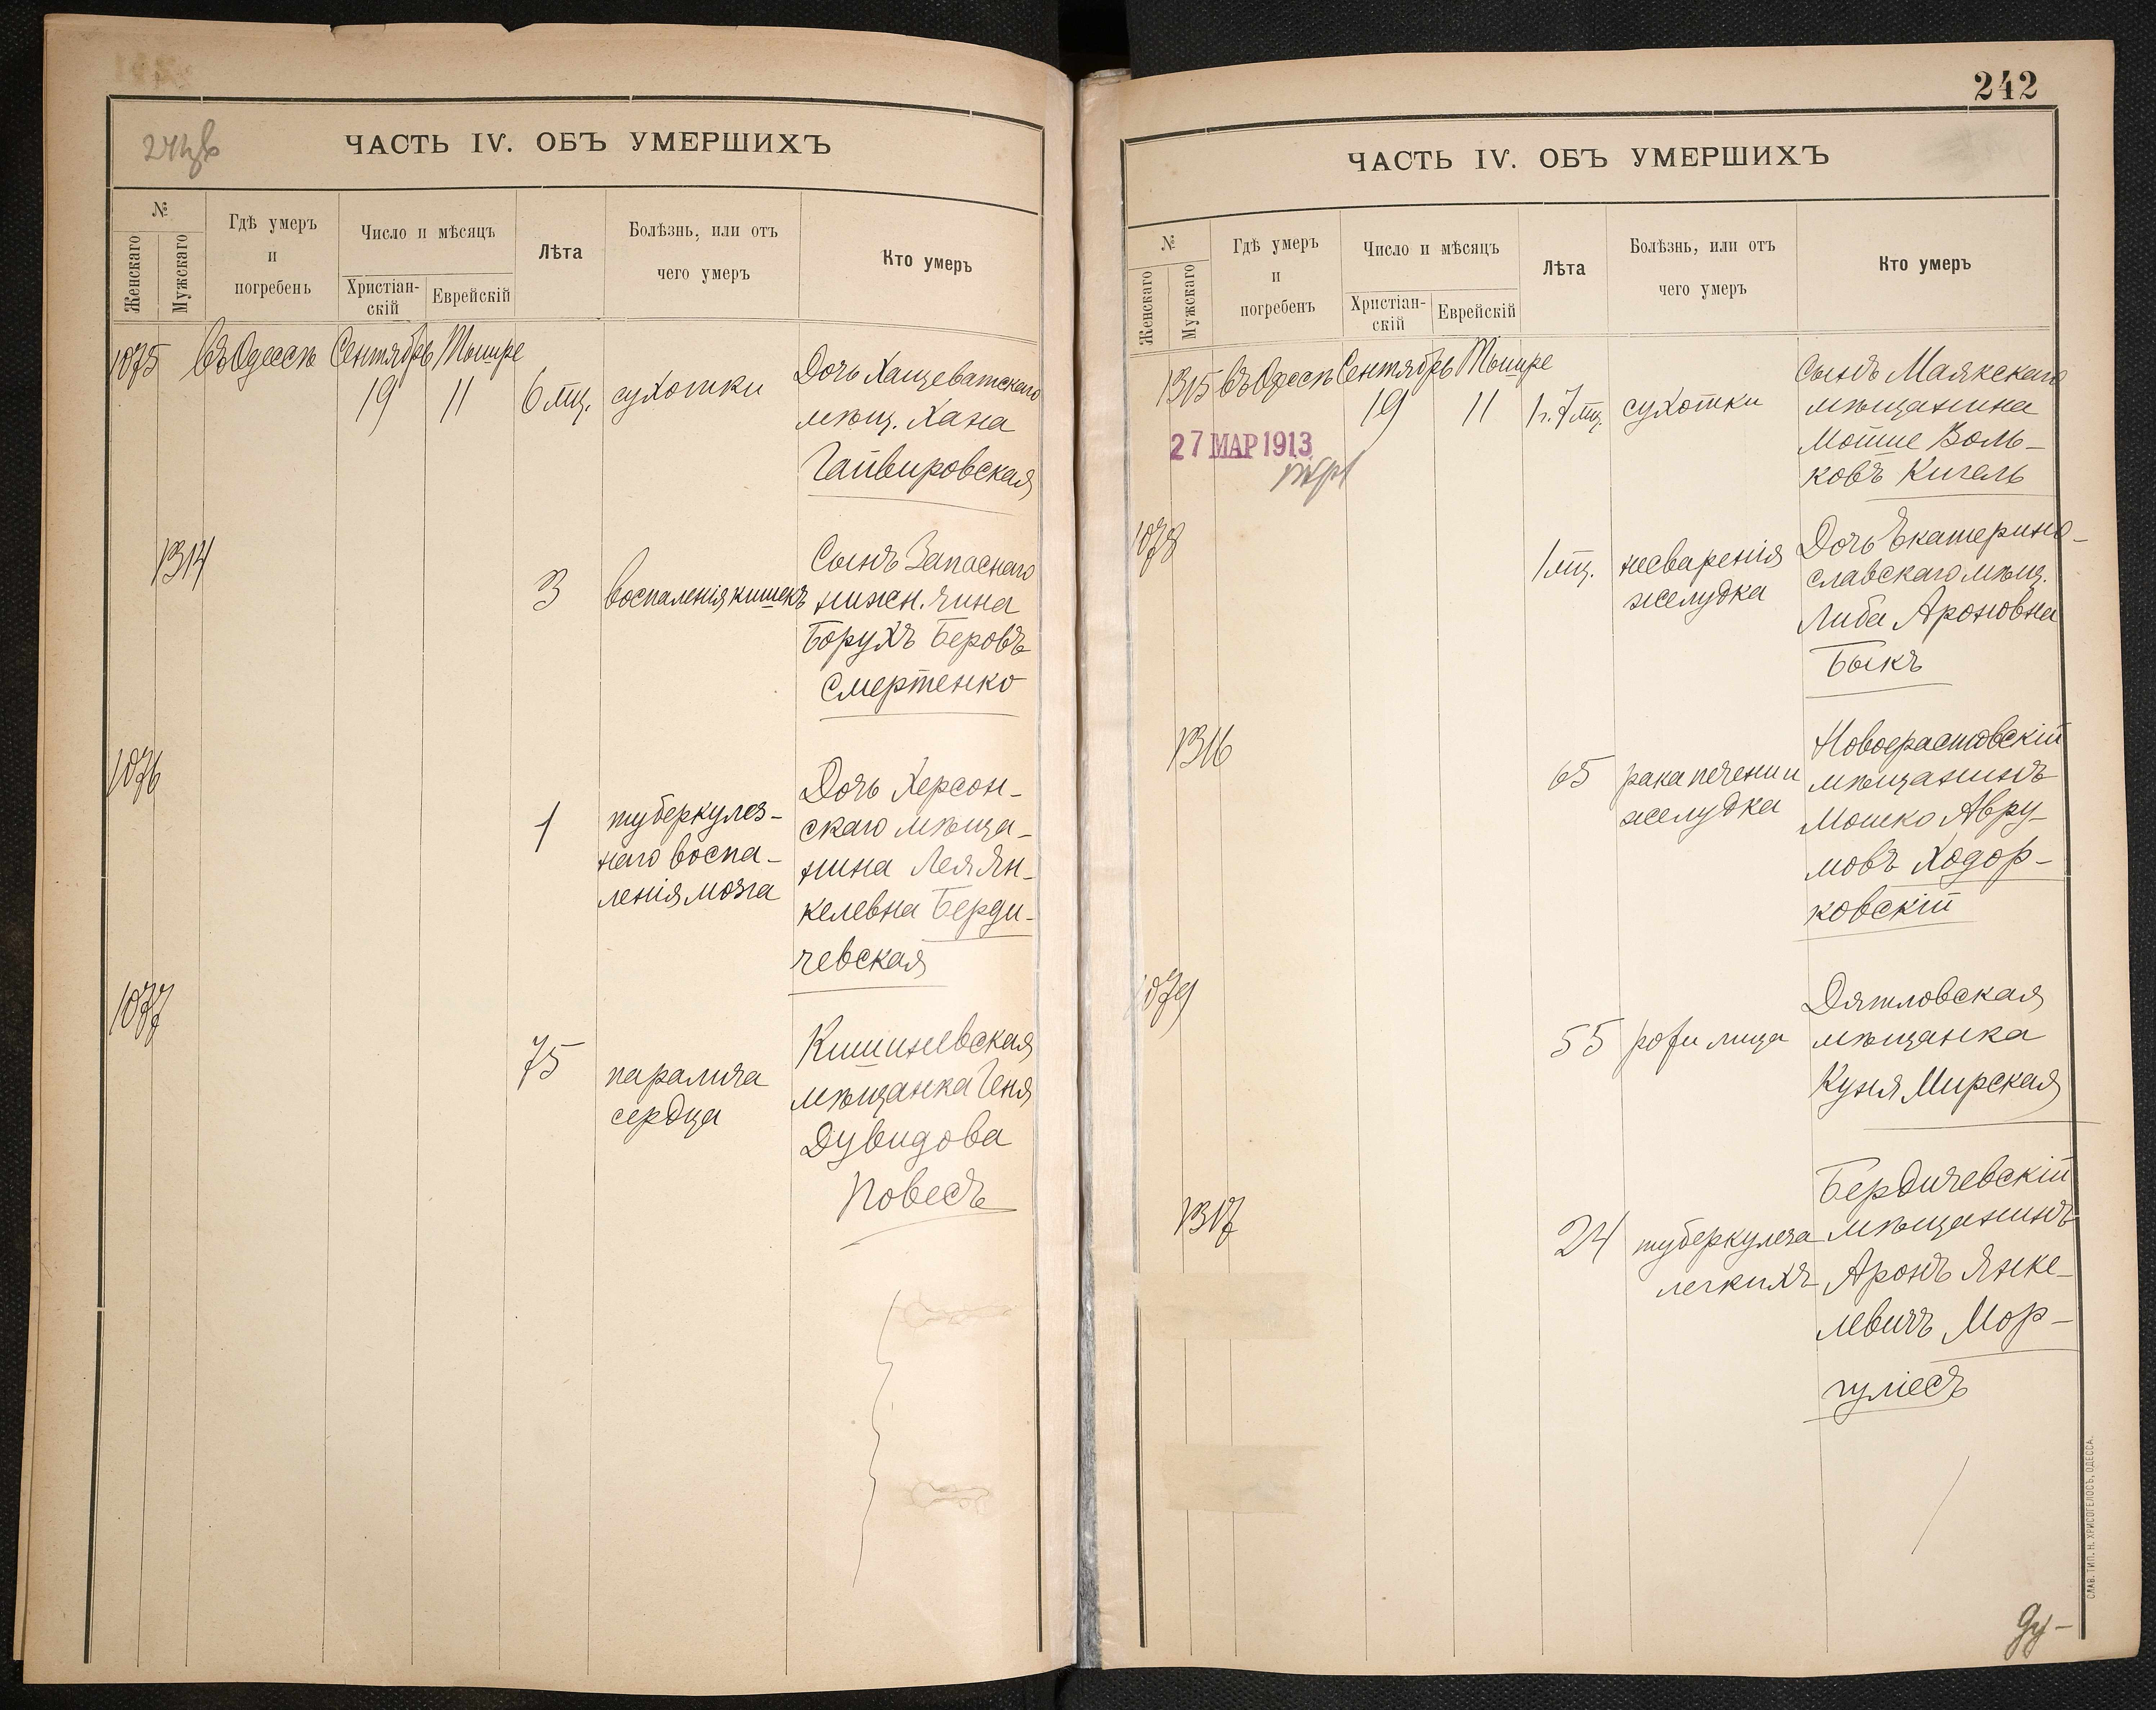 ЧАСТЬ IV. ОБЪ УМЕРШИХЪ
№
Женскаго
Мужскаго
Гдѣ умеръ
и
погребенъ
Число и мѣсяцъ
Христіан-
скій
Еврейскій
Лѣта
Болѣзнь, или отъ
чего умеръ
Кто умеръ
1075 въ Одессѣ Сентябрь Тышре
19 11 6 мц. сухотки
Дочь Хащеватскаго
мѣщ. Хана
Гайвировская
1314
3 воспаленія кишекъ
Сынъ Запаснаго
нижн. чина
Борухъ Беровъ
Смертенко
1076
1 туберкулез-
наго воспа-
ленія мозга
Дочь Херсон-
скаго мѣща-
нина Лея Ян-
келевна Берди-
чевская
1077
75 паралича
сердца
Кишиневская
мѣщанка Геня
Дувидова
Повесъ
242
ЧАСТЬ IV. ОБЪ УМЕРШИХЪ
№
Женскаго
Мужскаго
Гдѣ умеръ
и
погребенъ
Число и мѣсяцъ
Христіан-
скій
Еврейскій
Лѣта
Болѣзнь, или отъ
чего умеръ
Кто умеръ
1315 въ Одессѣ Сентябрь Тышре
19 11 1 г. 7 мц. сухотки
27 МАР 1913
Сынъ Маякскаго
мѣщанина
Мойше Воль-
ковъ Кигель
1078
1 мц. несваренія
желудка
Дочь Екатерино-
славскаго мѣщ.
Либа Ароновна
Быкъ
1316
65 рака печени и
желудка
мѣщанинъ
Мошко Авру-
мовъ Ходор-
ковскій
1079
55 рожи лица
Дятловская
мѣщанка
Куня Мирская
1317
24 туберкулеза
легкихъ
Бердичевскій
мѣщанинъ
Аронъ Янке-
левичъ Мор-
гуліесъ
Ду-
СЛАВ. ТИП. Н. ХРИСОГЕЛОСЪ, ОДЕССА.